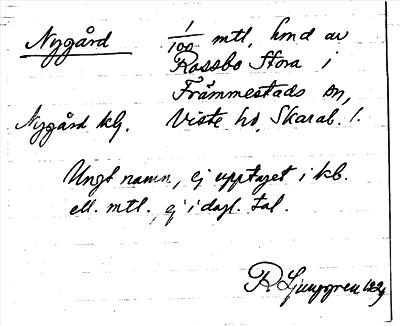 Nygård 1/100 mtl, hmd av
Rossbo Stora i
Främmestads sn,
Nygård kbj. Viste hd, Skarab. l.
Ungt namn, ej upptaget i kb.
ell. mtl., ej i dagl. tal.
R Ljunggren